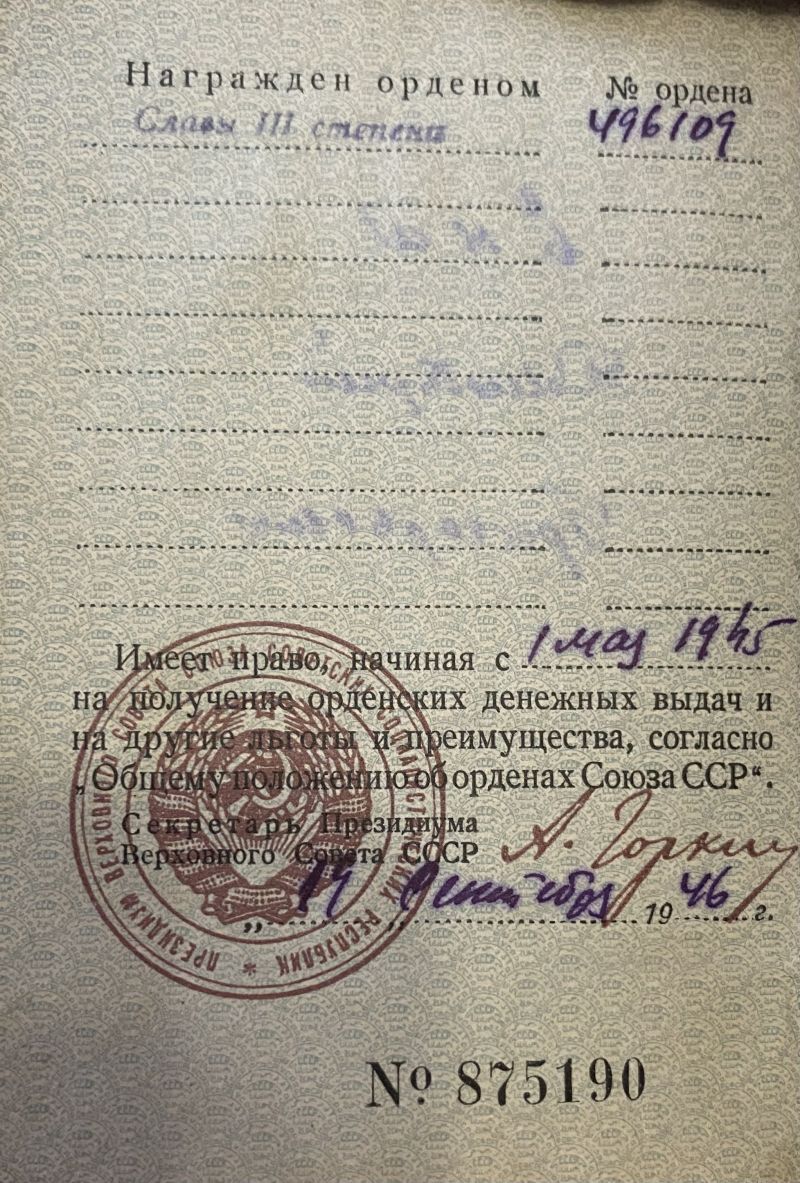 Награжден орденом № ордена
Славы III степени 496109
Имеет право, начиная с 1 мая 1945
на получение орденских денежных выдач и
на другие льготы и преимущества, согласно
„Общему положению об орденах Союза ССР“.
Секретарь Президиума
Верховного Совета СССР А. Горкин
„19 „ сентября 1946 г.
ПРЕЗИДИУМ ВЕРХОВНОГО СОВЕТА СОЮЗА СОВЕТСКИХ СОЦИАЛИСТИЧЕСКИХ РЕСПУБЛИК *
№ 875190